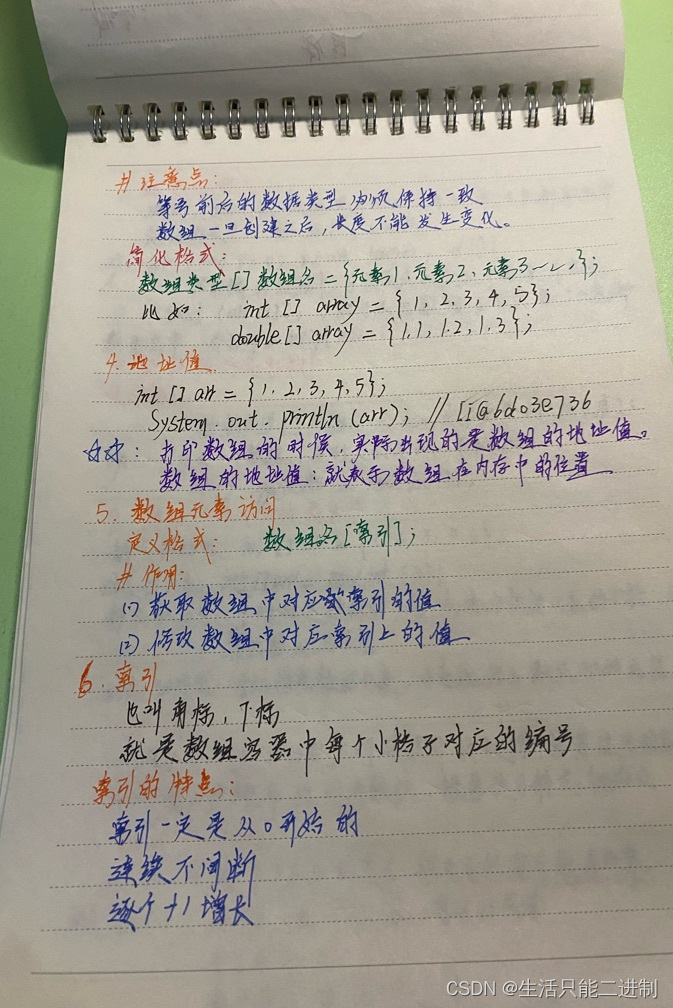 # 注意点:
等号前后的数据类型必须保持一致
数组一旦创建之后,长度不能发生变化。
简化格式:
数组类型[] 数组名={元素1、元素2、元素3~~};
比如: int [] array = {1, 2, 3, 4, 5};
double [] array = {1.1, 1.2, 1.3};
4. 地址值.
int [] arr = {1. 2, 3, 4, 5};
System. out. println (arr); // [I@6d03e736
打印数组的时候,实际出现的是数组的地址值。
数组的地址值:就表示数组在内存中的位置
5. 数组元素访问
定义格式: 数组名[索引];
# 作用:
(1) 获取数组中对应索引的值
(2) 修改数组中对应索引上的值
6. 索引
也叫角标,下标
就是数组容器中每个小格子对应的编号
索引的特点:
索引一定是从0开始的
连续不间断
逐个+1增长
CSDN @生活只能二进制